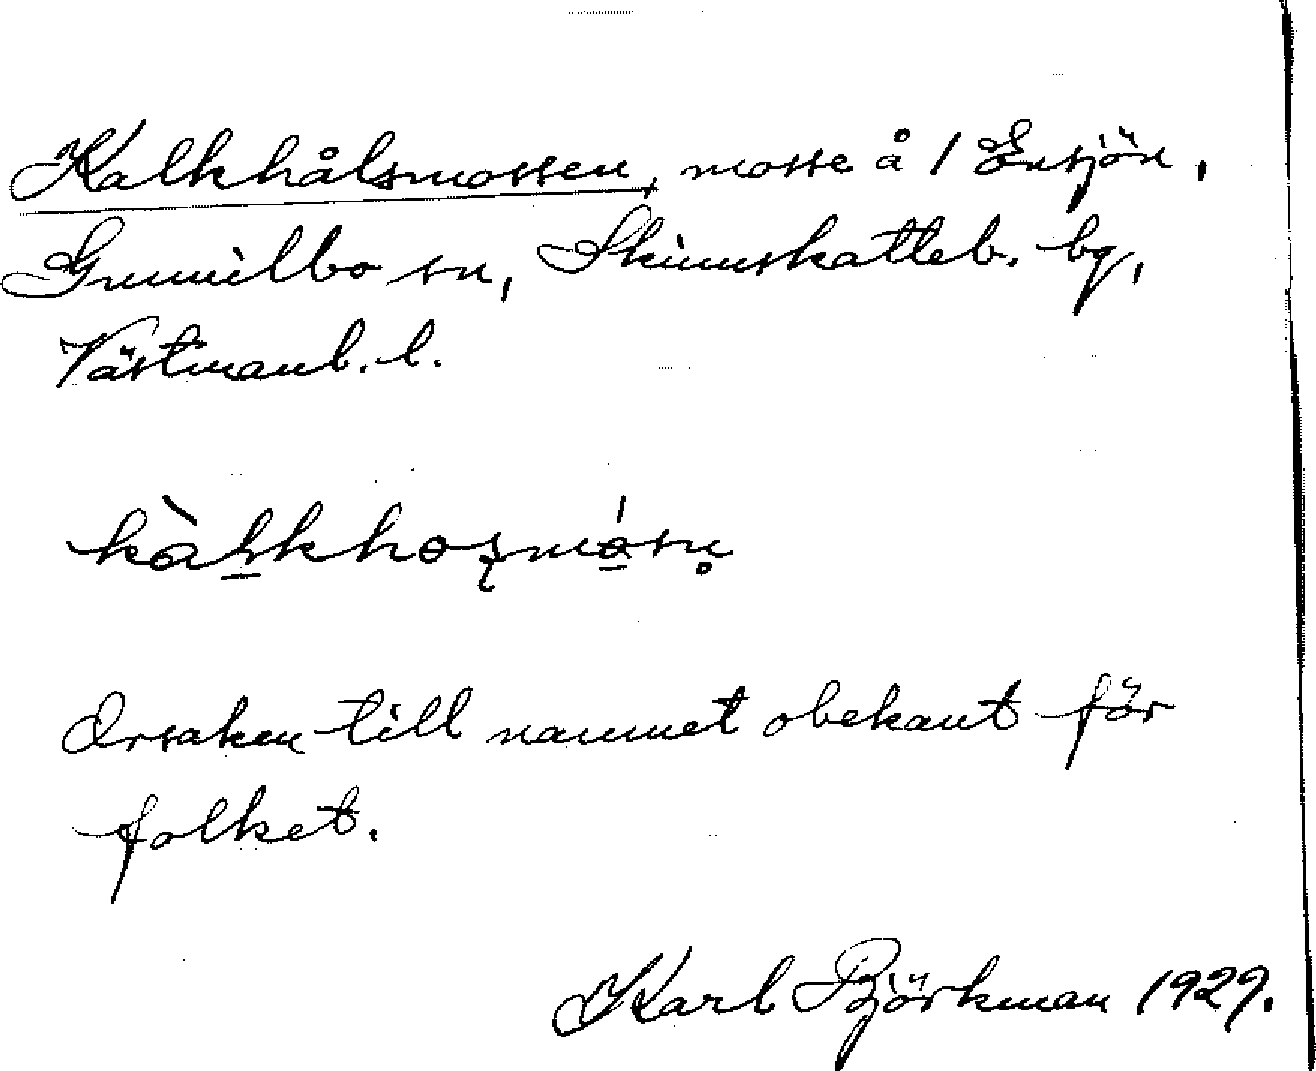 Kalkhålsmossen, mosse å 1 Ensjön,
Gunnilbo sn, Skinnskatteb. bg,
Västmanl. l.
Orsaken till namnet obekant för
folket.
Karl Björkman 1929.